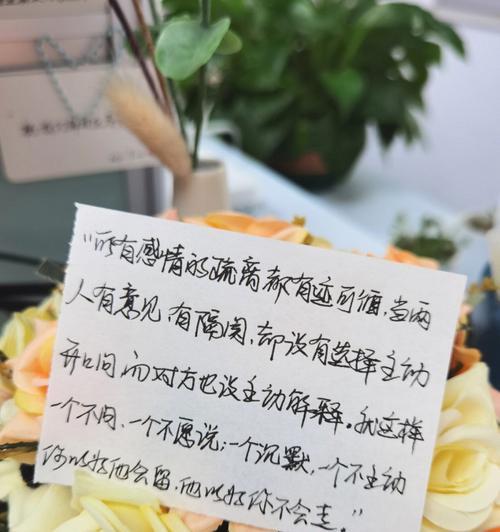 "所有感情的疏离都有迹可循,当两
人有意见,有隔阂,却没有选择主动
开口问而对方也没主动解释。就这样
一个不问、一个不愿说;一个沉默,一个不主动
你以为他会留,他以为你不会走"